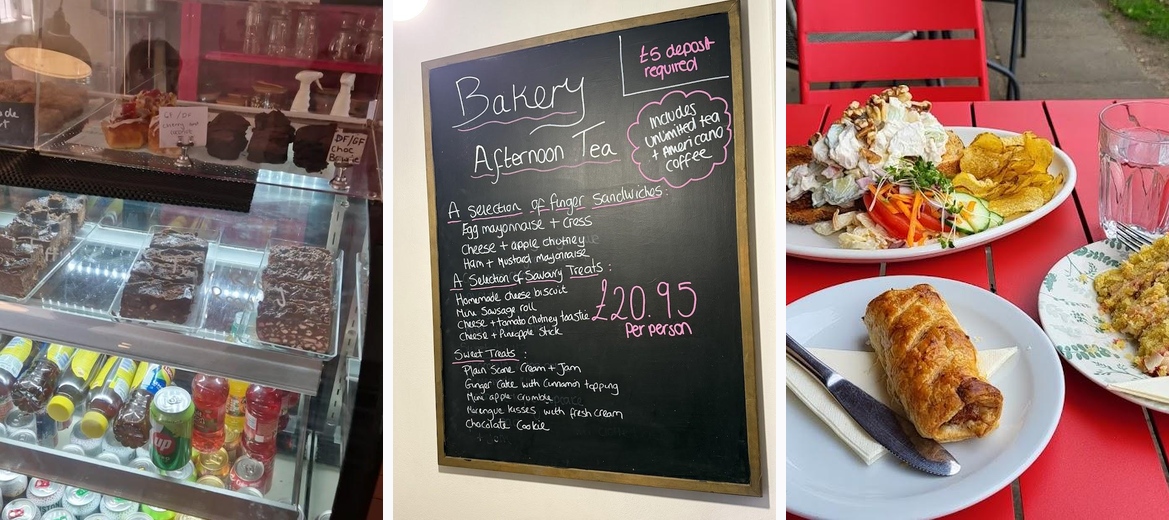 GF/DF
cherry and
DF/GF
choc
up
Bakery
Afternoon Tea
£5 deposit
required
Includes
unlimited tea
+ Americano
coffee
A selection of finger sandwiches:
Egg mayonnaise + cress
Cheese + apple chutney
Ham + Mustard mayonnaise
A Selection of Savoury Treats:
Homemade cheese biscuit
Mini Sausage roll
Cheese + tomato chutney toastie
Cheese + Pineapple Stick
£20.95
Per person
Sweet Treats:
Plain Scone Cream + Jam
Ginger Cake with Cinnamon topping
Mini apple crumble
Merengue kisses with fresh cream
Chocolate Cookie